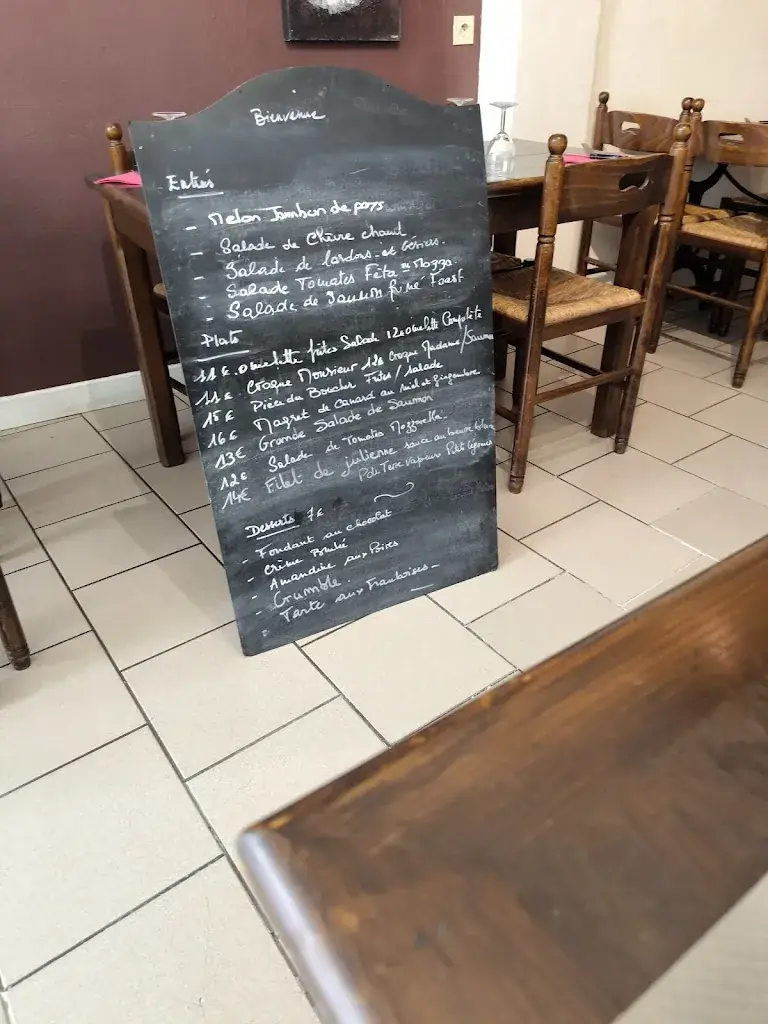 Bienvenue
Entrés
- Melon Jambon de pays
- Salade de Chèvre chaud
- Salade de lardons et Gésiers.
- Salade Tomates Féta Mozza.
- Salade de Saumon fumé Toast
Plats
11€ omelette frites Salade 12€ omelette Complète
11€ Croque Monsieur 12€ Croque Madame/Saumon
15€ Pièce du Boucher Frites / salade
16€ Magret de Canard au miel et gingembre
13€ Grande Salade de Saumon
12€ Salade de Tomates Mozzarella.
14€ Filet de julienne sauce au beurre blanc
Pde Terre vapeur Petit légumes
Desserts 7€
- Fondant au chocolat
- Crème Brulée
- Amandine aux Poires
- Crumble.
- Tarte aux Framboises -